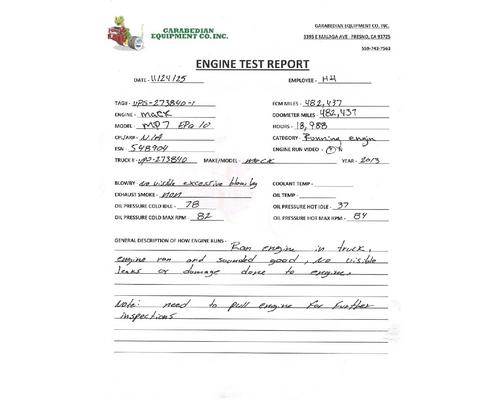 GARABEDIAN
EQUIPMENT CO. INC.
GARABEDIAN EQUIPMENT CO. INC.
3395 E MALAGA AVE - FRESNO, CA 93725
559-743-7563
ENGINE TEST REPORT
DATE - 11/24/25 EMPLOYEE - HH
TAG# - UPS-273840-1 ECM MILES - 482,437
ENGINE - mack ODOMETER MILES - 482,437
MODEL - MP7 EPA 10 HOURS - 18,988
CPL/ARR - N/A CATEGORY - Running engin
ESN - 548904 ENGINE RUN VIDEO -
TRUCK # - UPS-273840 MAKE/MODEL - MACK YEAR - 2013
BLOWBY - no visible excessive blow by COOLANT TEMP -
EXHAUST SMOKE - non OIL TEMP -
OIL PRESSURE COLD IDLE - 78 OIL PRESSURE HOT IDLE - 37
OIL PRESSURE COLD MAX RPM - 82 OIL PRESSURE HOT MAX RPM - 84
GENERAL DESCRIPTION OF HOW ENGINE RUNS - Ran engine in truck,
engine ran and sounded good, No visible
leaks or damage done to engine.
Note: need to pull engine for further
inspections